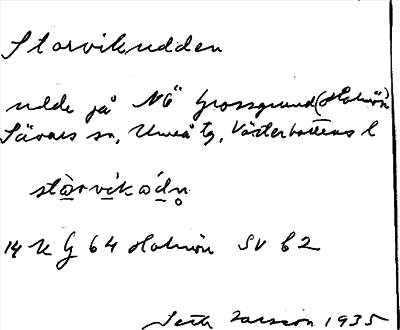 Storvikudden
udde på NÖ Grossgrund (Holmön)
Sävars sn, Umeå tg, Västerbottens l
14 K G 64 Holmön SV 62
Seth Larsson 1935